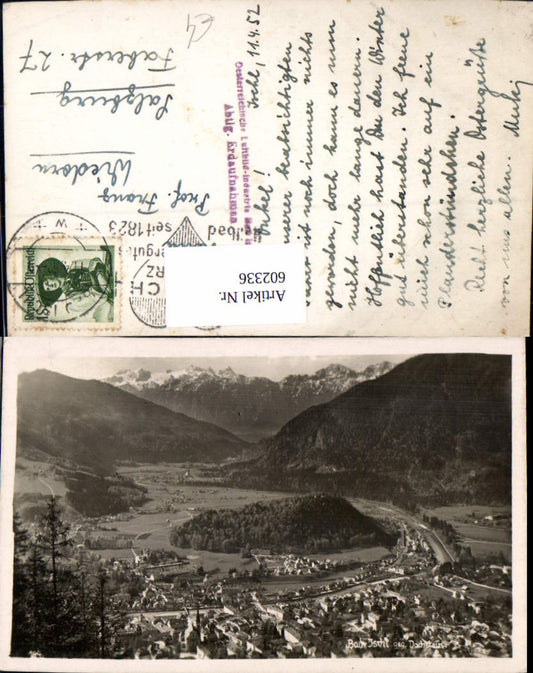 Ischl, 11.4.52
unserer beabsichtigten
ist noch immer nichts
geworden, doch kann es nun
nicht mehr lange dauern.
Hoffentlich hast Du den Winter
gut überstanden. Ich freue
mich schon sehr auf ein
Plauderstündchen.
Recht herzliche Ostergrüße
von uns allen.
Prof. Franz
Wiedorn
Salzburg
Faberstr. 27
Oesterreichische Luftbild-Industrie
Abtlg. Erdaufnahmen
seit 1823
Republik Österreich
Artikel Nr.
602336
Bad Ischl geg. Dachstein